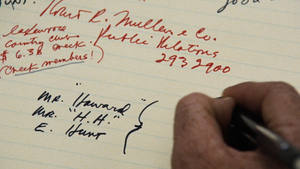 Robert R. Mullen & Co.
Public Relations
293 2900
Lakewood
country club
$ 6.36 check.
(check members!)
"
Mr. "Howard"
Mr. "H.H."
E. Hunt